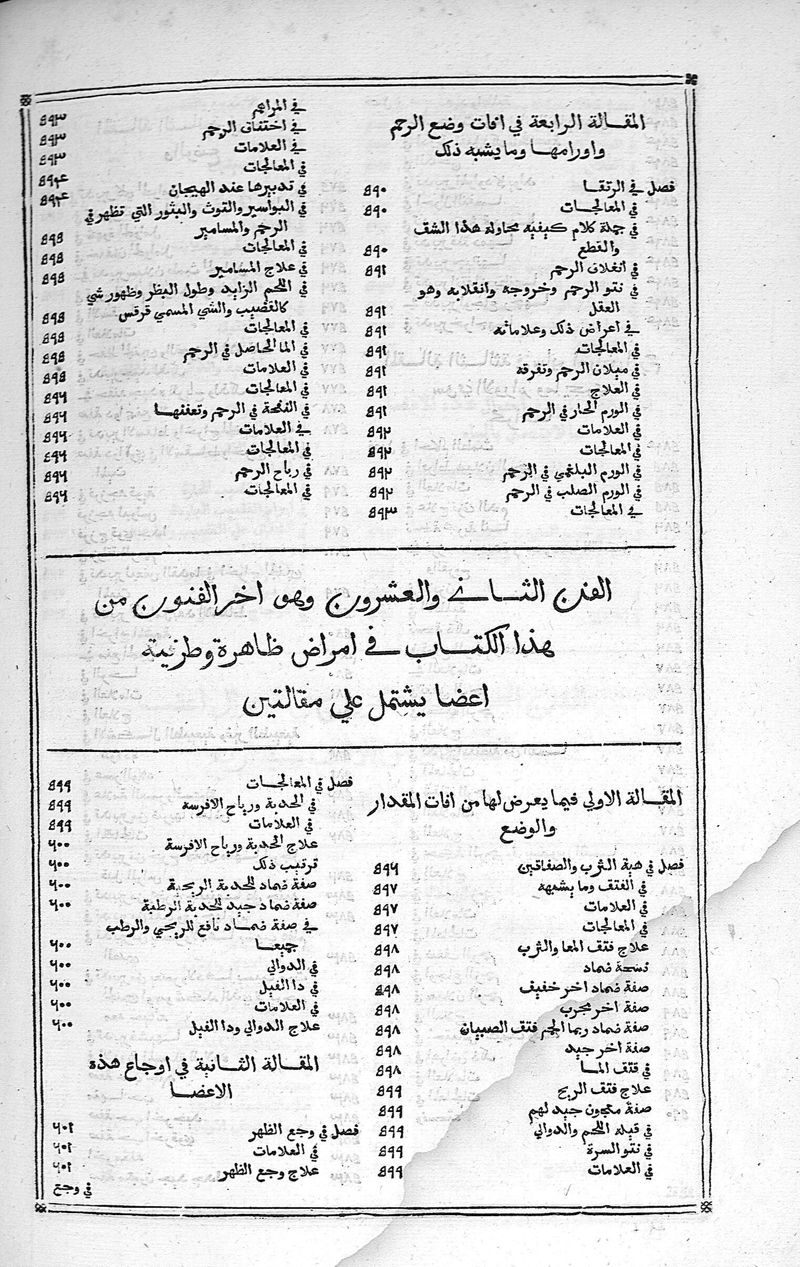 المقالة الرابعة في افات وضع الرحم
واورامها وما يشبه ذلك
فصل في الرتقا ٥٩٠
في المعالجات ٥٩٠
في جملة كلام كيفيه محاوله هذا الشف
والقطع ٥٩٠
في انغلاق الرحم ٥٩١
في نتو الرحم وخروجه وانقلابه وهو
العقل ٥٩١
في اعراض ذلك وعلاماته ٥٩١
في المعالجات ٥٩١
في ميلان الرحم وتفرقه ٥٩١
في العلاج ٥٩١
في الورم الحار في الرحم ٥٩١
في العلامات ٥٩٢
في المعالجات ٥٩٢
في الورم البلغمي في الرحم ٥٩٢
في الورم الصلب في الرحم ٥٩٢
في المعالجات ٥٩٣
في المراهم ٥٩٣
في اختناق الرحم ٥٩٣
في العلامات ٥٩٣
في المعالجات ٥٩٤
في تدبيرها عند الهيجان ٥٩٤
في البواسير والتوث والبثور التي تظهر في
الرحم والمسامير ٥٩٥
في المعالجات ٥٩٥
في علاج المسامير ٥٩٥
في اللحم الزايد وطول البظر وظهور شي
كالقضيب والشي المسمي قرقس ٥٩٥
في المعالجات ٥٩٥
في الما الحاصل في الرحم ٥٩٥
في العلامات ٥٩٥
في المعالجات ٥٩٦
في النفخة في الرحم وتعقفها ٥٩٦
في العلامات ٥٩٦
في المعالجات ٥٩٦
في رياح الرحم ٥٩٦
في المعالجات ٥٩٦
الفن الثاني والعشرون وهو اخر الفنون من
هذا الكتاب في امراض ظاهرة وطرنية
اعضا يشتمل علي مقالتين
المقالة الاولي فيما يعرض لها من افات المقدار
والوضع
فصل في هية الثرب والصفاقين ٥٩٦
في الفتف وما يشبهه ٥٩٧
في العلامات ٥٩٧
في المعالجات ٥٩٧
علاج فتف المعا والثرب ٥٩٨
نسخة ضماد ٥٩٨
صفة ضماد اخر خفيف ٥٩٨
صفة اخر مجرب ٥٩٨
صفة ضماد ربما الجم فتف الصبيان ٥٩٨
صفة اخر جيد ٥٩٨
في فتف الما ٥٩٨
علاج فتف الريح ٥٩٩
صفة معجون جيد لهم ٥٩٩
في قيله اللحم والدوالي ٥٩٩
في نتو السرة ٥٩٩
في العلامات ٥٩٩
فصل في المعالجات ٥٩٩
في الحدبة ورياح الافرسة ٥٩٩
في العلامات ٥٩٩
علاج الحدبة ورياح الافرسة ٦٠٠
ترتيب ذلك ٦٠٠
صفة ضماد للحدبة الريحية ٦٠٠
صفة ضماد جيد للحدبة الرطبة ٦٠٠
في صفة ضماد نافع للريحي والرطب
جميعا ٦٠٠
في الدوالي ٦٠٠
في دا الفيل ٦٠٠
في العلامات ٦٠٠
علاج الدوالي ودا الفيل ٦٠٠
المقالة الثانية في اوجاع هذه
الاعضا
فصل في وجع الظهر ٦٠١
في العلامات ٦٠١
علاج وجع الظهر ٦٠١
في وجع